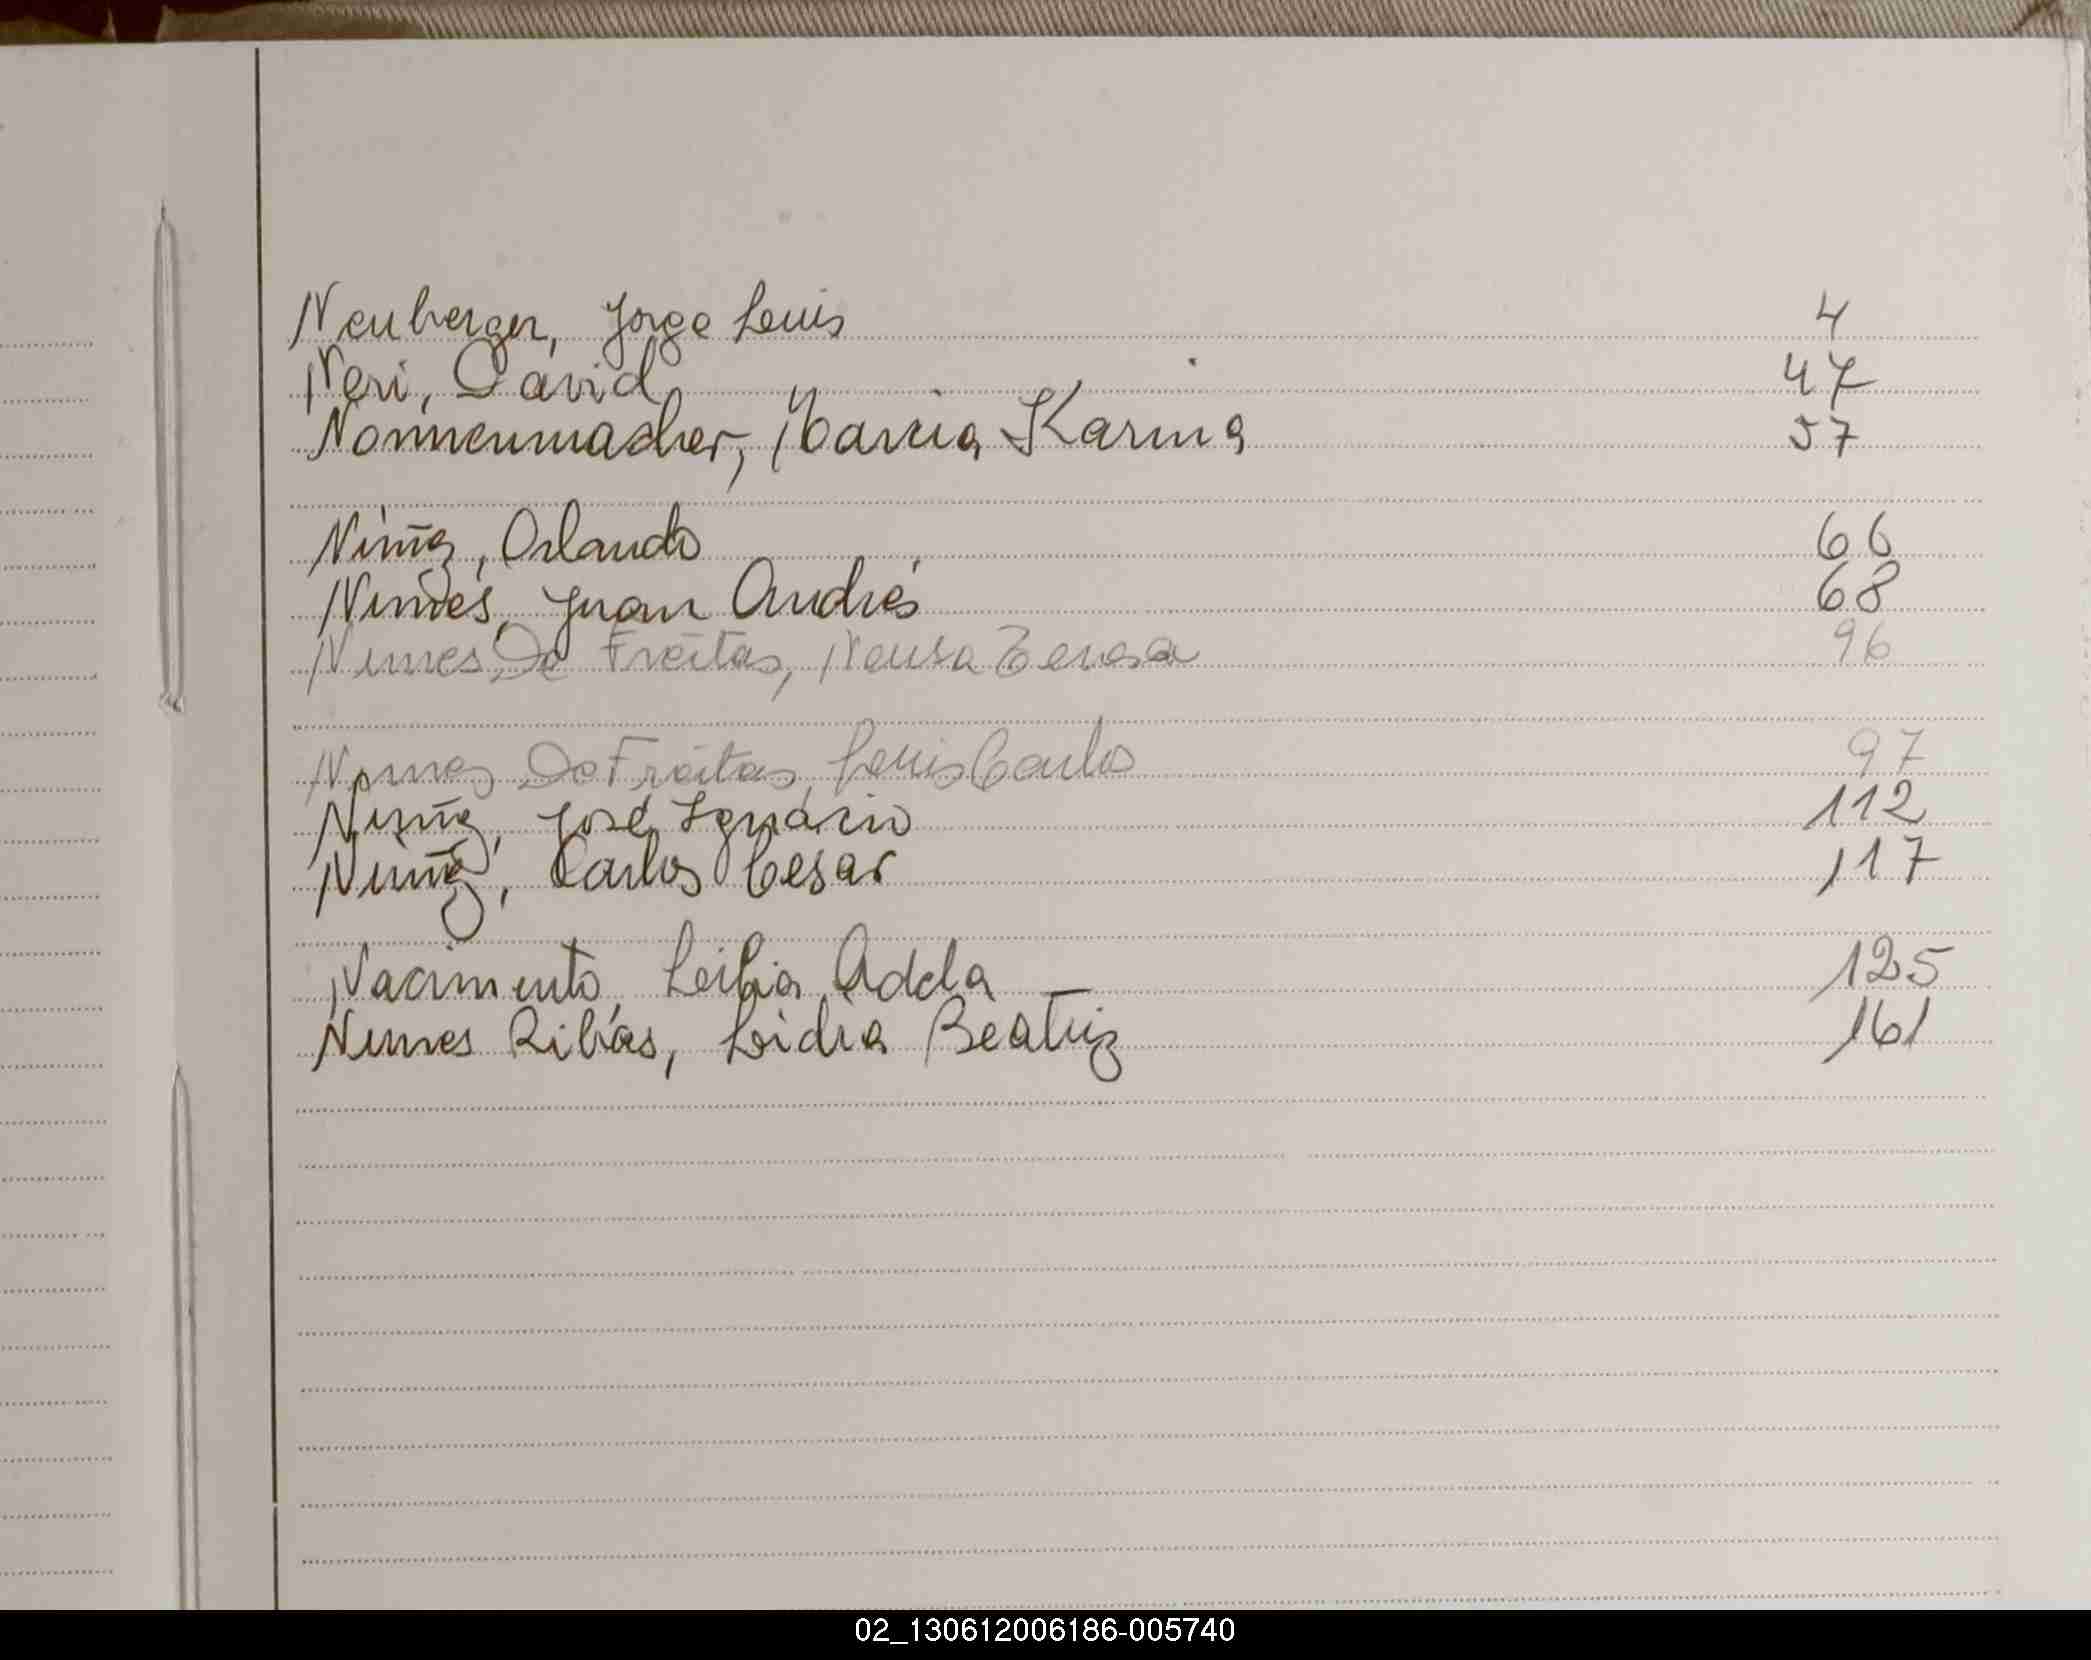 Neuberger, Jorge Luis 4
Neri, David 47
Nonnenmacher, Marcia Karina 57
Nuñez, Orlando 66
Nunes, Juan Andrés 68
Nunes De Freitas, Neusa Teresa 96
Nunes De Freitas, Luis Carlos 97
Nuñez, José Ignácio 112
Nuñez, Carlos Cesar 117
Nacimento, Leilia Adela 125
Nunes Ribas, Lidia Beatriz 161
02_130612006186-005740